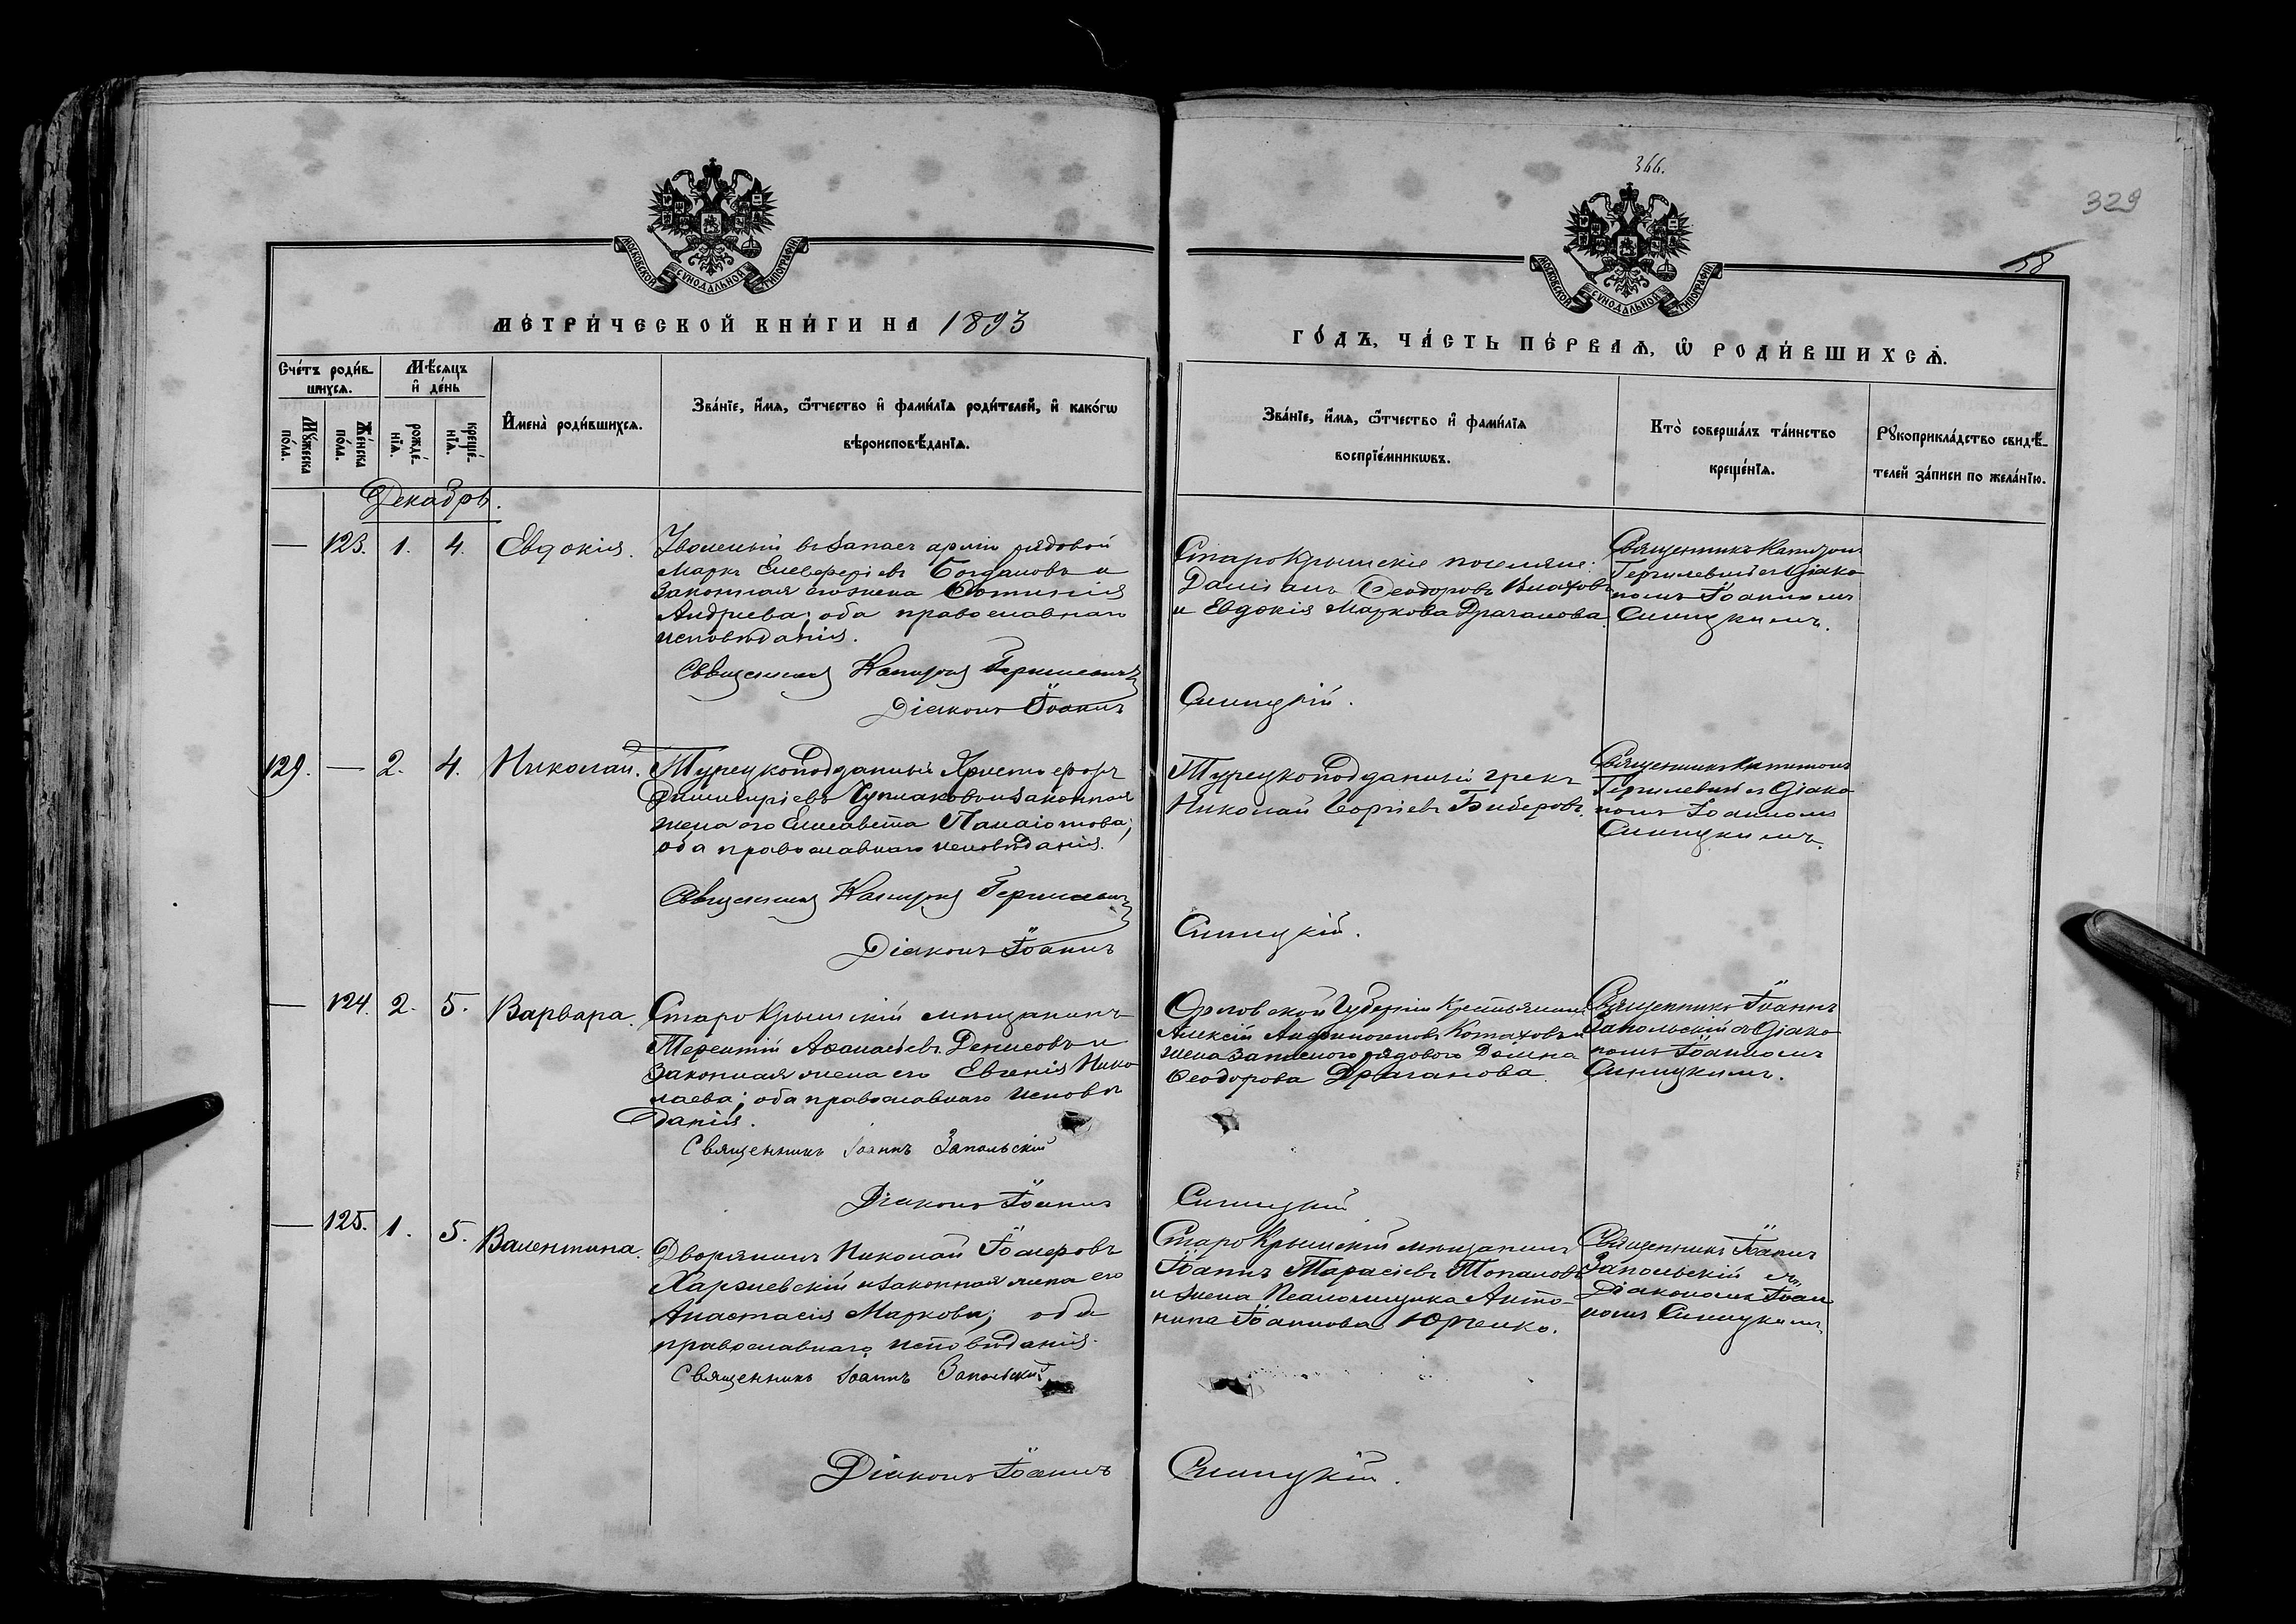 366.
329
58
МОСКОВСКОЙ СУНОДАЛЬНОЙ ТИПОГРАФІИ
МОСКОВСКОЙ СУНОДАЛЬНОЙ ТИПОГРАФІИ
МЕТРИЧЕСКОЙ КНИГИ НА 1893
ГОДЪ, ЧАСТЬ ПЕРВАЯ, Ѡ РОДИВШИХСЯ.
Счетъ родив-
шихся.
Мѣсяцъ
и день
Мужеска
пола.
Женска
пола.
рожде-
нія.
креще-
нія.
Имена родившихся.
Званіе, имя, ѿчество и фамилія родителей, и какогѡ
вѣроисповѣданія.
Званіе, имя, ѿчество и фамилія
воспріемникѡвъ.
Кто совершалъ таинство
крещенія.
Рукоприкладство свидѣ-
телей записи по желанію.
Декабрь.
— 123. 1. 4. Евдокія.
Уволеный въ запасъ арміи рядовой
Маркъ Елевферіевъ Богдановъ и
законная его жена
Андреева; оба православнаго
исповѣданія.
Священникъ Капитонъ Гермилевичъ
Діаконъ Іоаннъ
Старокрымскіе поселяне:
Даміанъ Ѳеодоровъ Влаховъ
и Евдокія Маркова Драганова
Синицкій.
Священникъ Капитонъ
Гермилевичъ съ діако
номъ Іоанномъ
Синицкимъ.
129. — 2. 4. Николай.
Турецкоподданный Христофоръ
Димитріевъ и законная
жена его Елисавета Панаіотова;
оба православнаго исповѣданія.
Священникъ Капитонъ Гермилевичъ
Діаконъ Іоаннъ
Турецкоподданный грекъ
Николай Георгіевъ Биберовъ.
Синицкій.
Священникъ Капитонъ
Гермилевичъ съ діако
номъ Іоанномъ
Синицкимъ.
— 124. 2. 5. Варвара.
Старокрымскій мѣщанинъ
Терентій Аѳанасіевъ Денисовъ и
законная жена его Евгенія Нико
лаева; оба православнаго исповѣ
данія.
Священникъ Іоаннъ Запольскій
Діаконъ Іоаннъ
Орловской Губерніи крестьянинъ
Алексій Котаховъ и
жена запаснаго рядового Домна
Ѳеодорова Драганова
Синицкій
Священникъ Іоаннъ
Запольскій съ діако
номъ Іоанномъ
Синицкимъ.
— 125. 1. 5. Валентина.
Дворянинъ Николай Іосифовъ
и законная жена его
Анастасія Маркова; оба
православнаго исповѣданія.
Священникъ Іоаннъ Запольскій
Діаконъ Іоаннъ
Старокрымскій мѣщанинъ
Іоаннъ Тарасіевъ Топаловъ
и жена псаломщика Анто-
нина Іоаннова Юрченко.
Синицкій.
Священникъ Іоаннъ
Запольскій съ
Діакономъ Іоан
номъ Синицкимъ